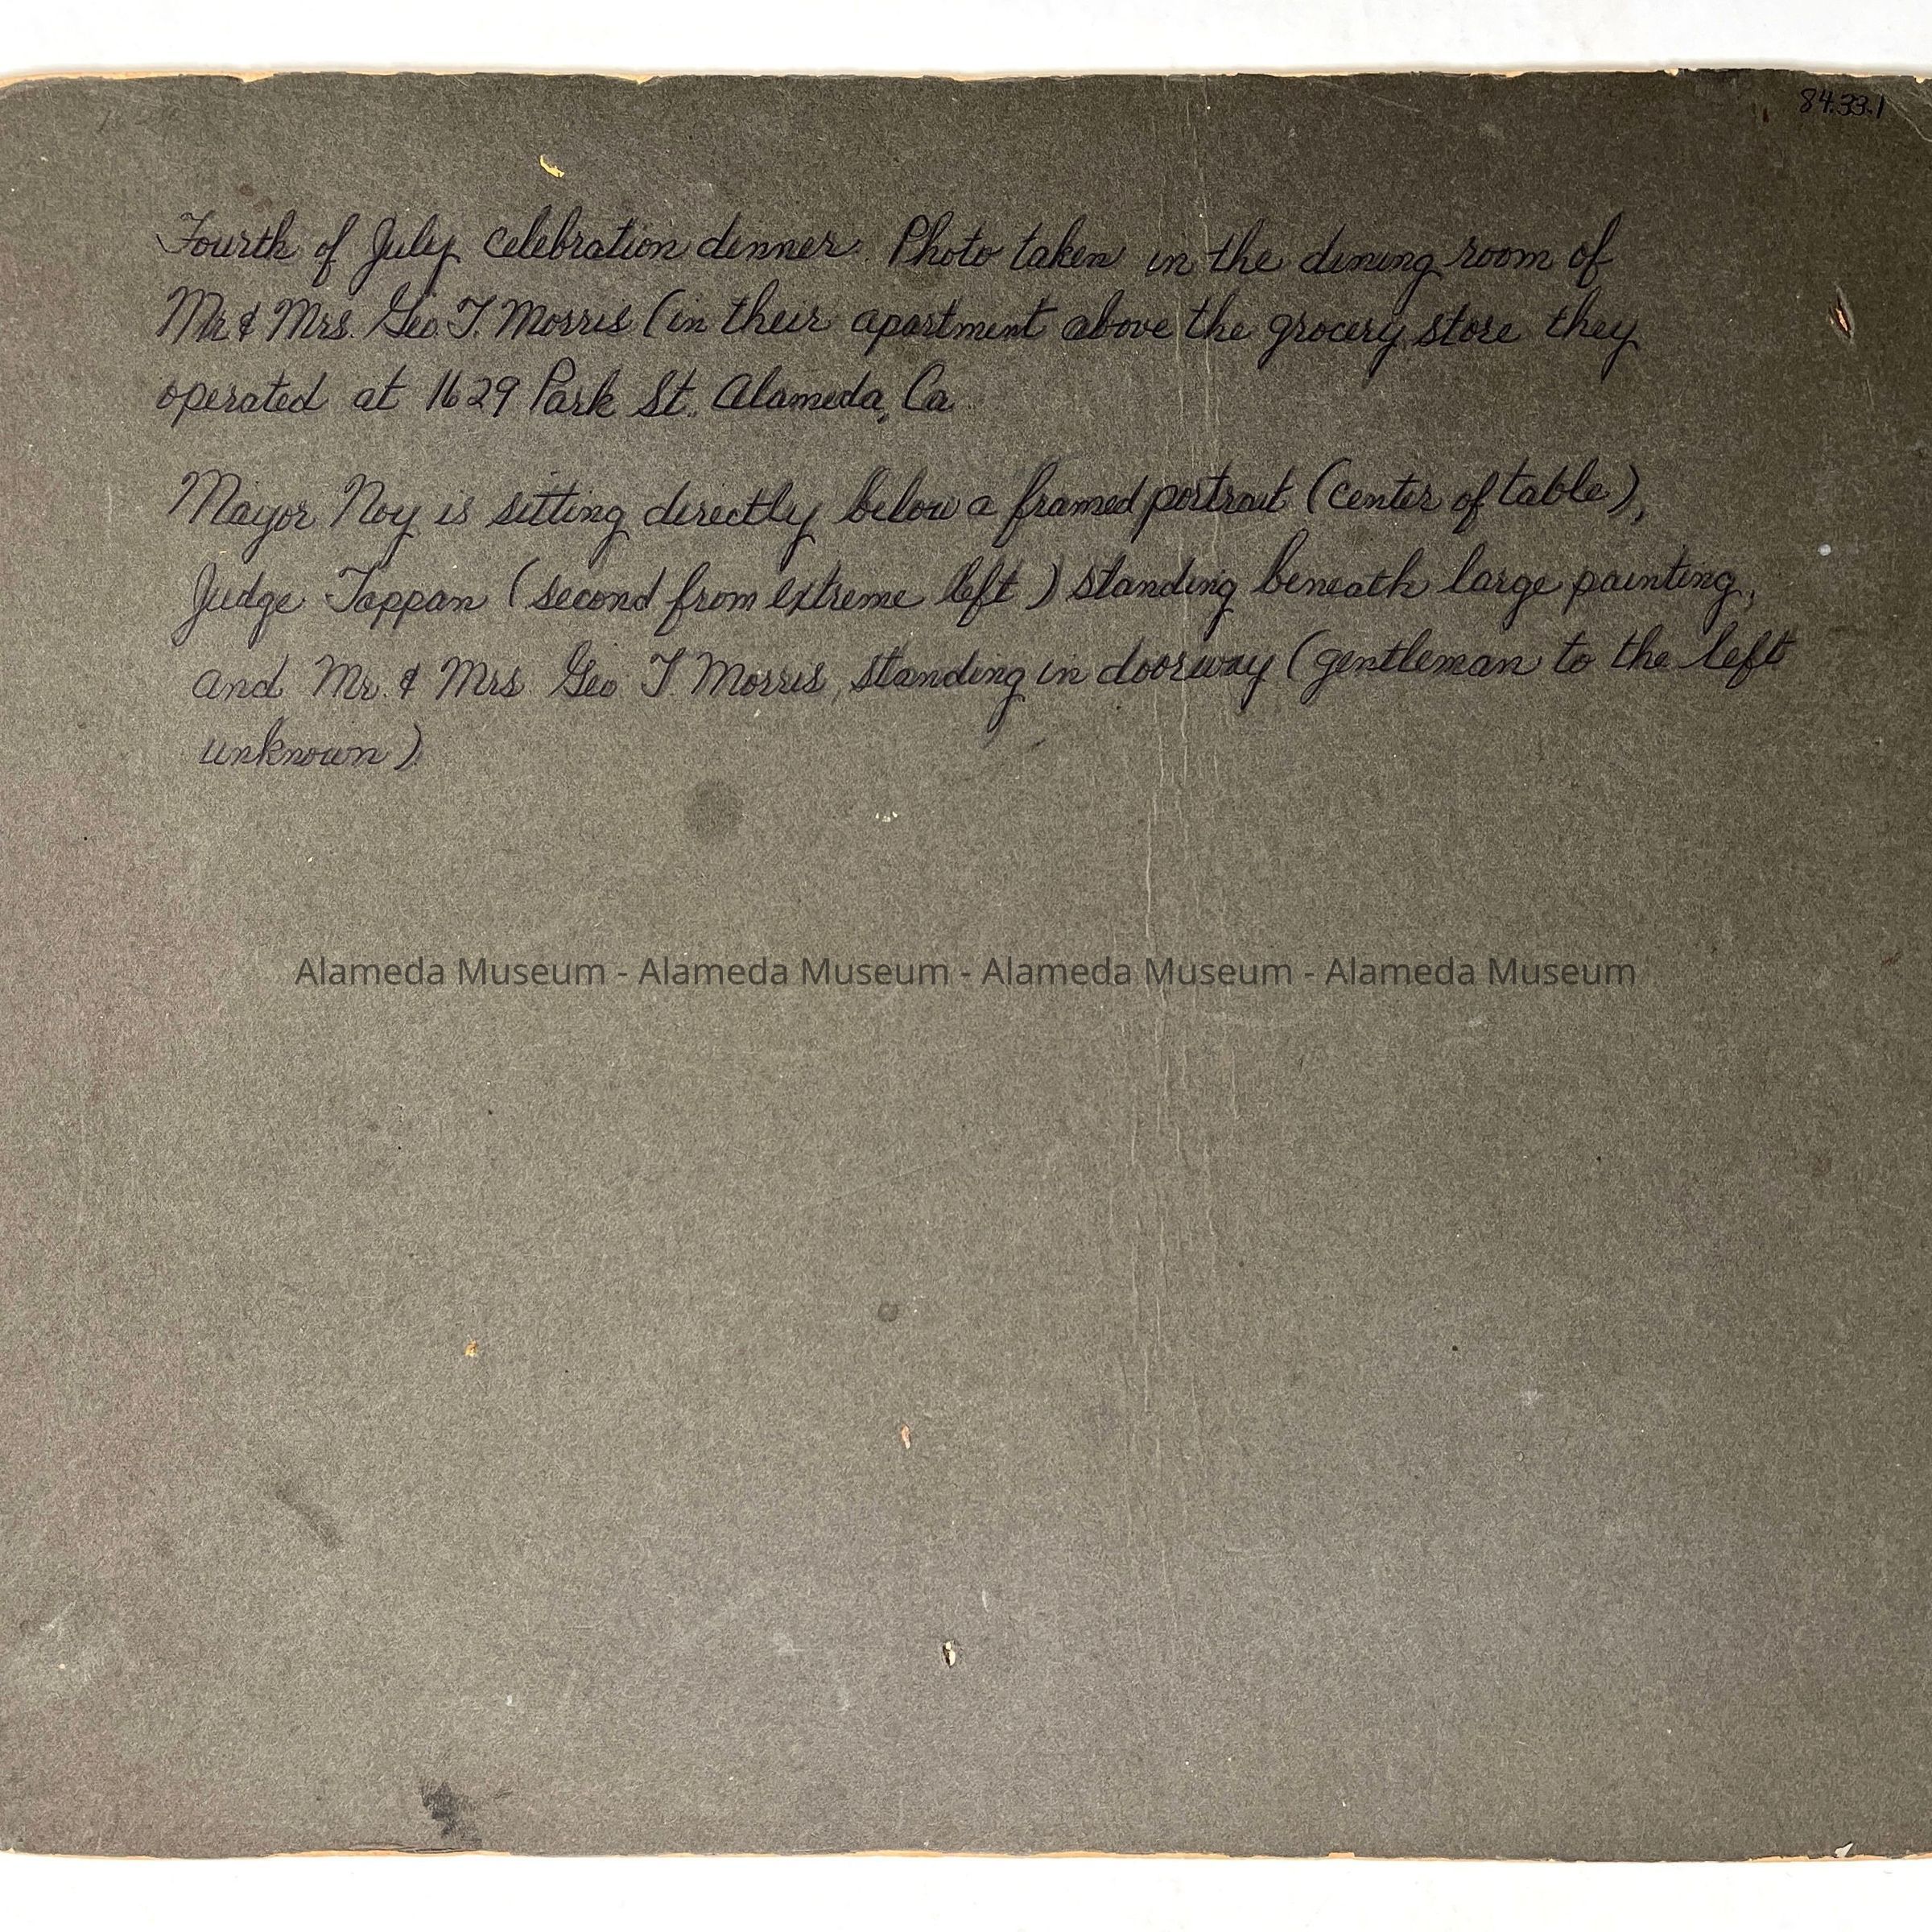 84.33.1
Fourth of July celebration dinner. Photo taken in the dining room of
Mr & Mrs. Geo. T. Morris (in their apartment above the grocery store they
operated at 1629 Park St. Alameda, Ca.
Mayor Noy is sitting directly below a framed portrait (center of table),
Judge Tappan (second from extreme left) standing beneath large painting,
and Mr. & Mrs Geo T. Morris, standing in doorway (gentleman to the left
unknown)
Alameda Museum - Alameda Museum - Alameda Museum - Alameda Museum